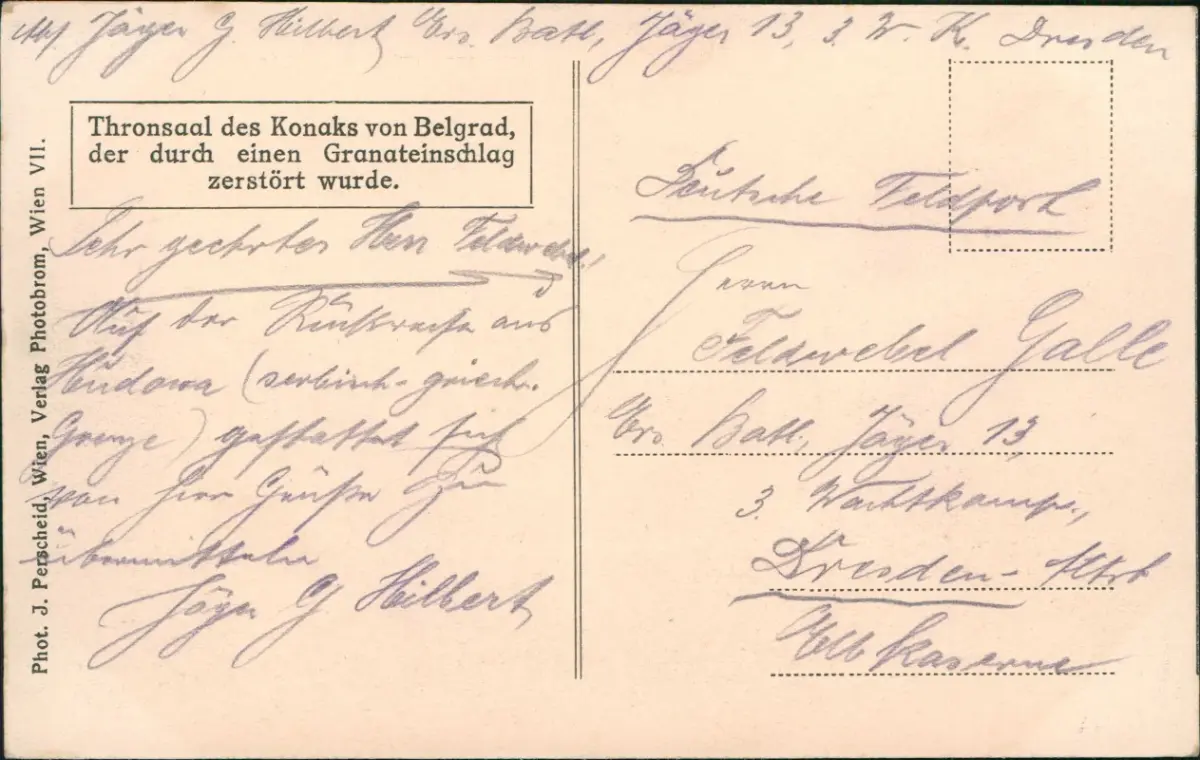 Abs. Jäger G. Hilbert Ers. Batl., Jäger 13, 3. W. K. Dresden
Thronsaal des Konaks von Belgrad,
der durch einen Granateinschlag
zerstört wurde.
Sehr geehrter Herr Feldwebel!
Auf der Rückreise aus
Hudowa (serbisch-griech.
Grenze) gestattet sich
von hier Grüße zu
übermitteln
Jäger G Hilbert
Phot. J. Perscheid, Wien, Verlag Photobrom, Wien VII.
Deutsche Feldpost
Herrn
Feldwebel Galle
Ers. Batl., Jäger 13,
3. Wachtkomp.,
Dresden-Altst
Elb Kaserne